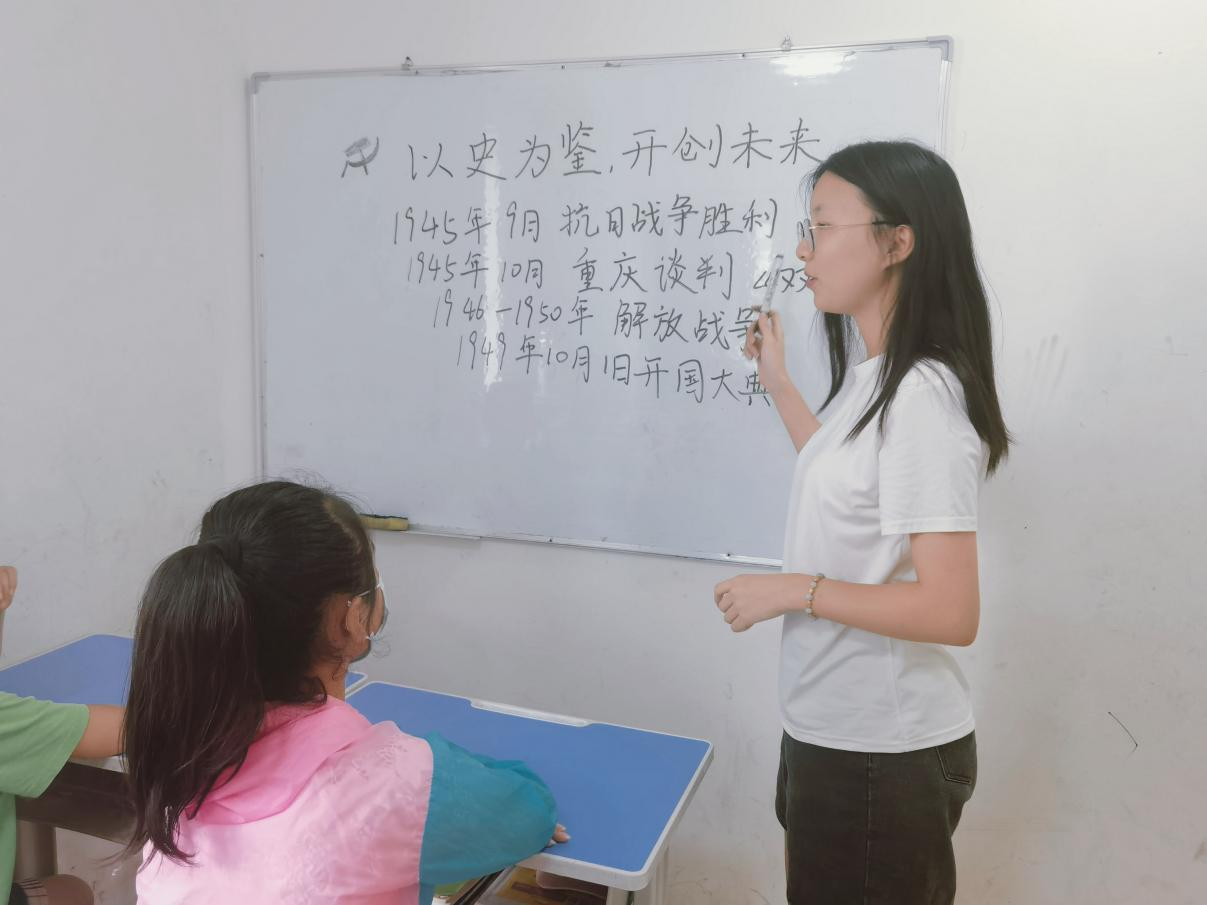 以史为鉴,开创未来
1945年9月 抗日战争胜利
1945年10月 重庆谈判
1946-1950年 解放战争
1949年10月1日开国大典